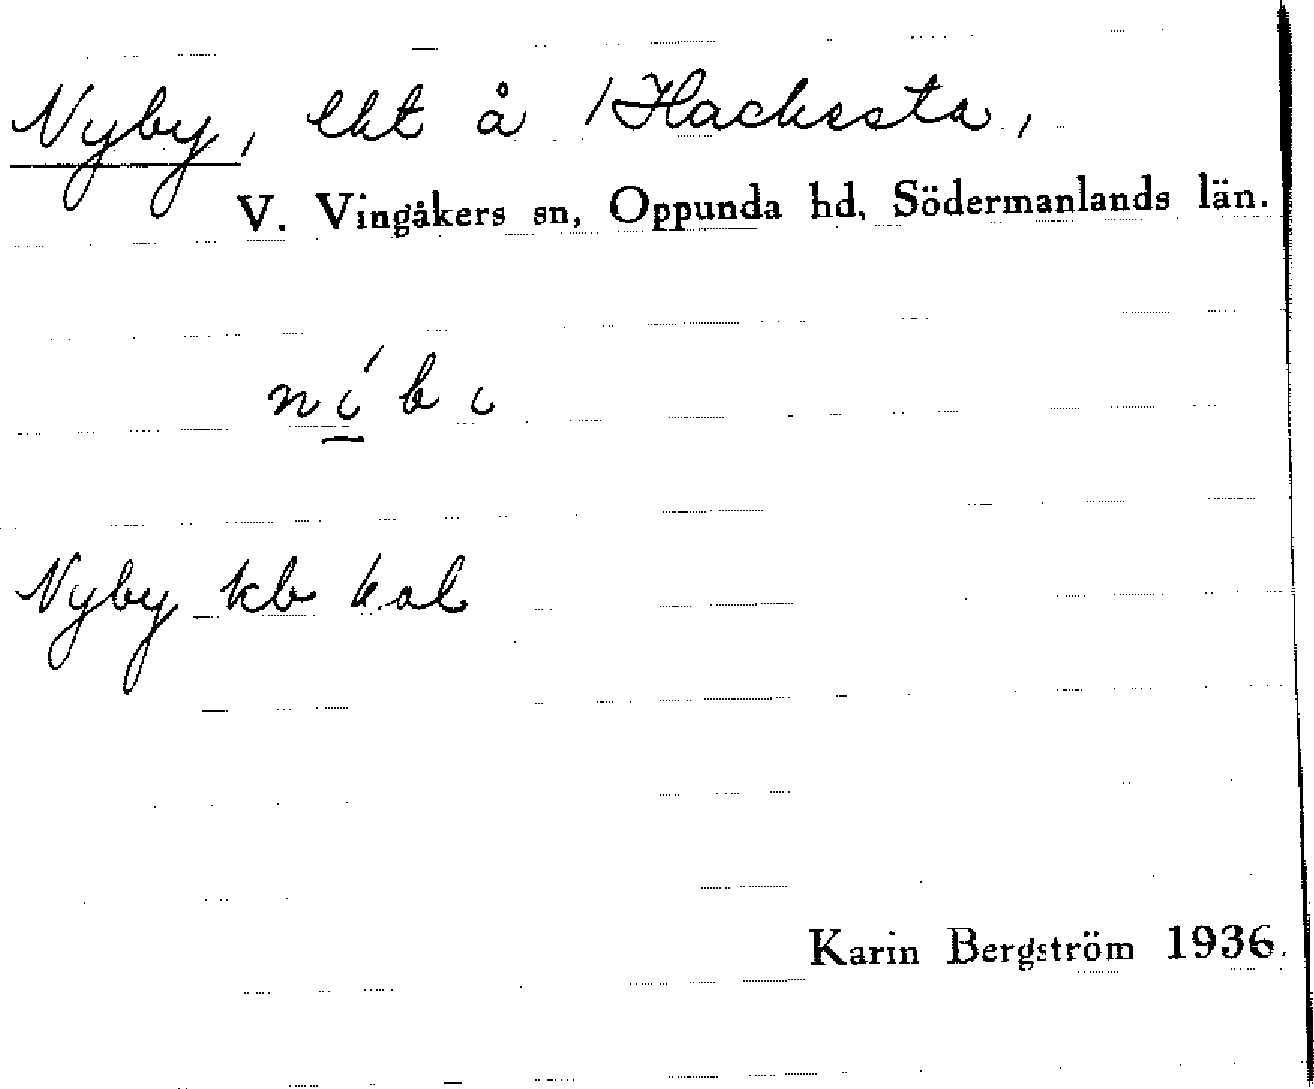 Nyby, lht å /Hacksta,
V. Vingåkers sn, Oppunda hd, Södermanlands län.
ní̱bι
Nyby kb
Karin Bergström 1936.